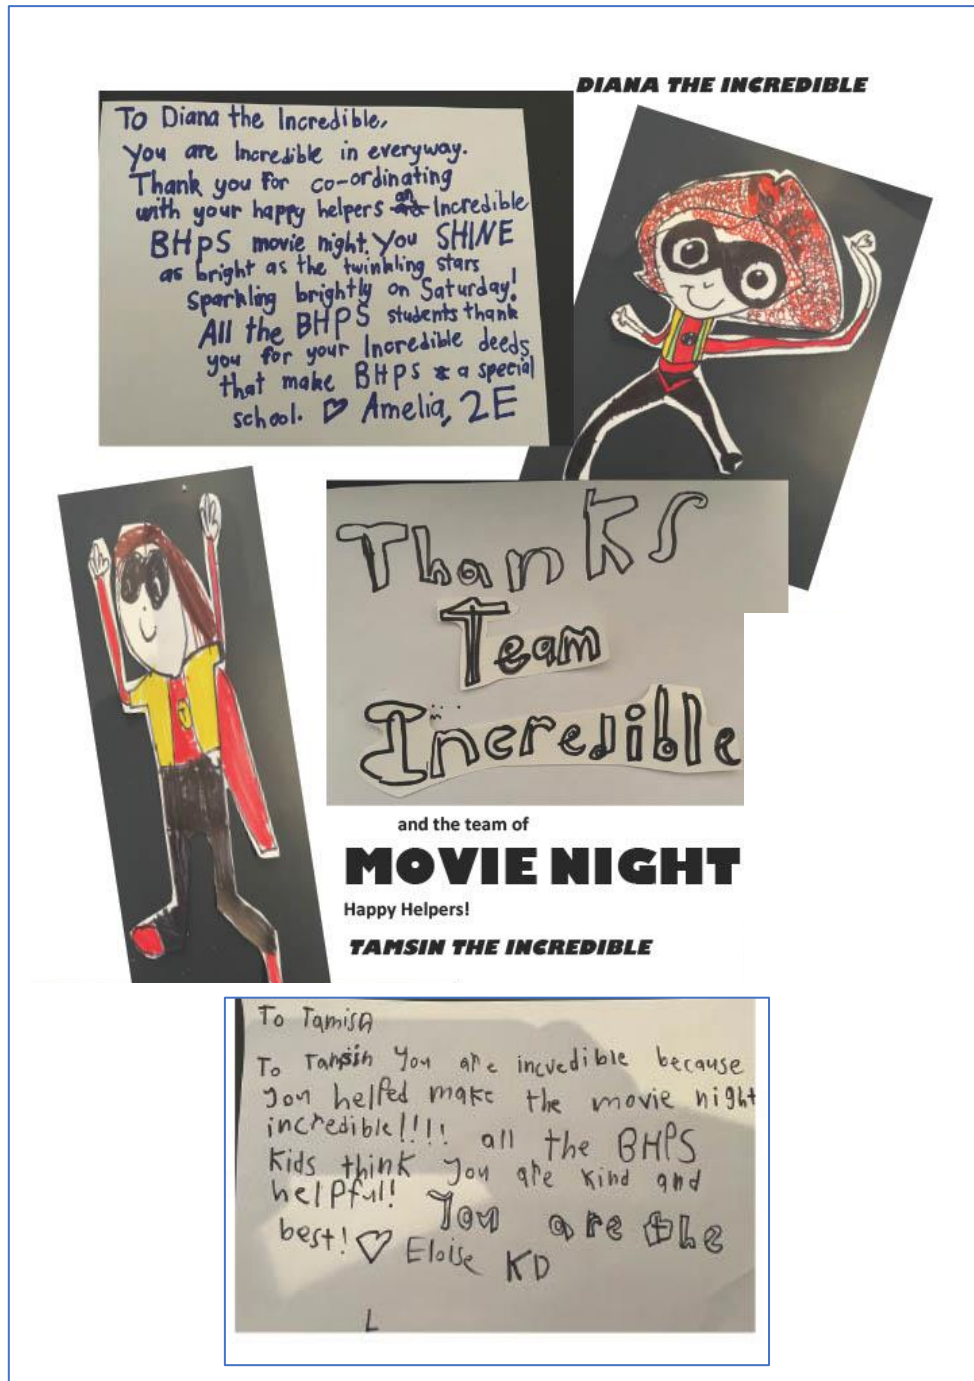 DIANA THE INCREDIBLE
To Diana the Incredible,
You are Incredible in everyway.
Thank you for co-ordinating
with your happy helpers an Incredible
BHPS movie night. You SHINE
as bright as the twinkling stars
Sparkling brightly on Saturday!
All the BHPS students thank
you for your Incredible deeds
that make BHPS a special
school. ♡ Amelia, 2E
Thanks
Team
Incredible
T
and the team of
MOVIE NIGHT
Happy Helpers!
TAMSIN THE INCREDIBLE
To Tamisn
To Tamsin You are incredible because
you helped make the movie night
incredible!!!! all the BHPS
Kids think you are kind and
helpful! You are the
best! ♡ Eloise KD
L